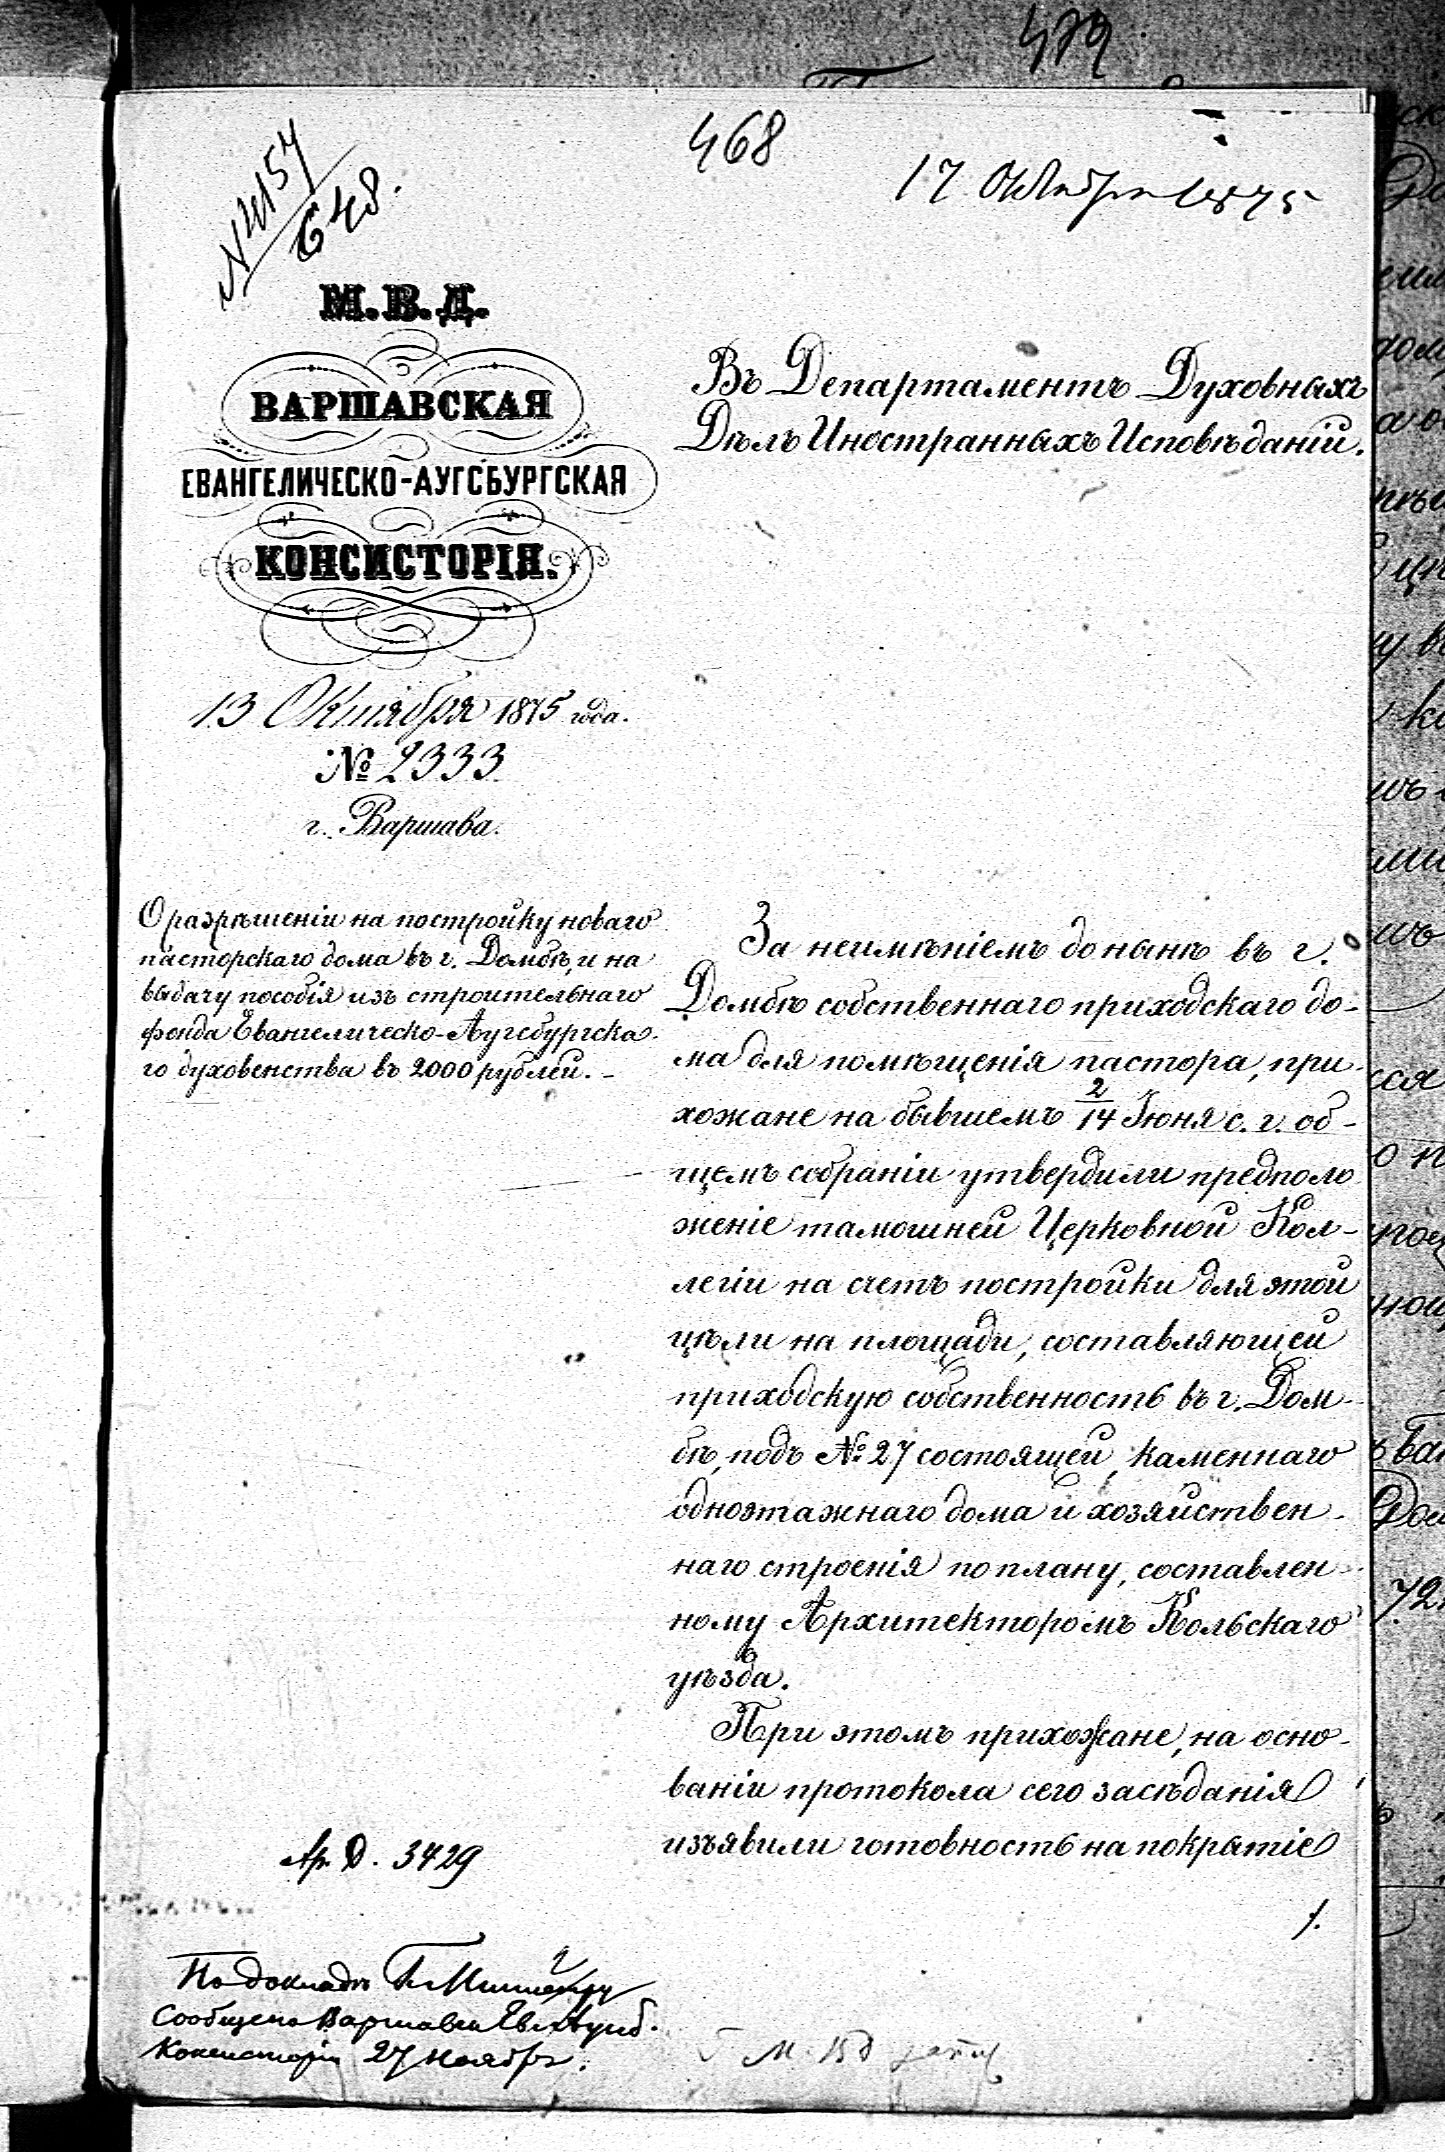 479
468
17 Октября 1875
№ 4154
648.
М.В.Д.
ВАРШАВСКАЯ
ЕВАНГЕЛИЧЕСКО-АУГСБУРГСКАЯ
КОНСИСТОРІЯ.
13 Октября 1875 года.
№ 2333
г. Варшава.
О разрѣшеніи на постройку новаго
пасторскаго дома въ г. Домбѣ, и на
выдачу пособія изъ строительнаго
фонда Евангелическо-Аугсбургска-
го духовенства въ 2000 рублей. -
Въ Департаментъ Духовныхъ
Дѣлъ Иностранныхъ Исповѣданій.
За неимѣніемъ до нынѣ въ г.
Домбѣ собственнаго приходскаго до-
ма для помѣщенія пастора, при-
хожане на бывшемъ 2/14 Іюня с. г. об-
щемъ собраніи утвердили предполо
женіе тамошней Церковной Кол-
легіи на счетъ постройки для этой
цѣли на площади, составляющей
приходскую собственность въ г. Дом-
бѣ, подъ № 27 состоящей, каменнаго
одноэтажнаго дома и хозяйствен-
наго строенія по плану, составлен-
ному Архитекторомъ Кольскаго
уѣзда.
При этомъ прихожане, на осно-
ваніи протокола сего засѣданія
изъявили готовность на покрытіе
Ар. Д. 3429
По докладѣ Г. Министру
Сообщено Варшавск Ев. Аугсб.
Консисторіи 27 Ноября.